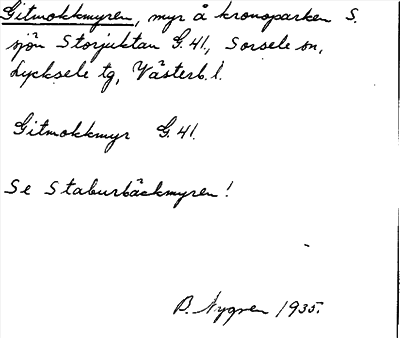 Gitmokkmyren, myr å kronoparken S.
sjön Storjuktan G.41., Sorsele sn,
Lycksele tg, Västerb.l.
Gitmokkmyr G.41.
Se Staburbäckmyren!
B. Nygren 1935.